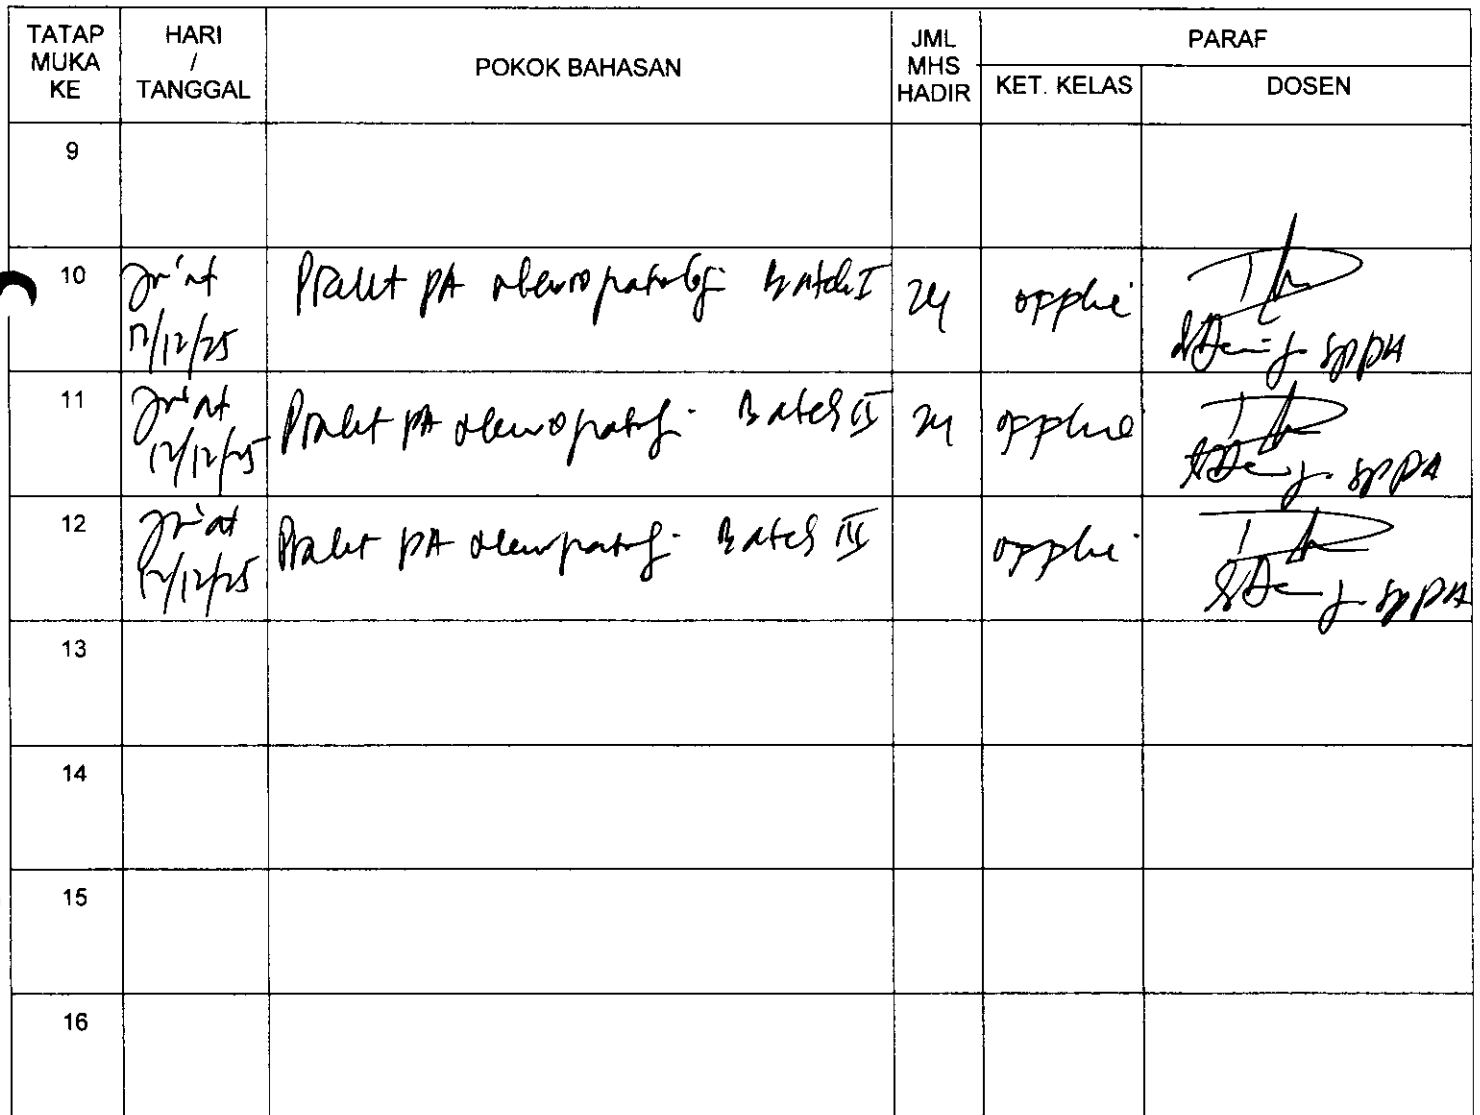 TATAP MUKA KE
HARI / TANGGAL
POKOK BAHASAN
JML MHS HADIR
PARAF
KET. KELAS
DOSEN
9
10
Jum'at
12/12/25
Prakt PA Neuropatologi Batch I
24
offline
SpPA
11
Jum'at
12/12/25
Prakt PA Neuropatologi Batch II
24
offline
SpPA
12
Jum'at
12/12/25
Prakt PA Neuropatologi Batch III
offline
SpPA
13
14
15
16